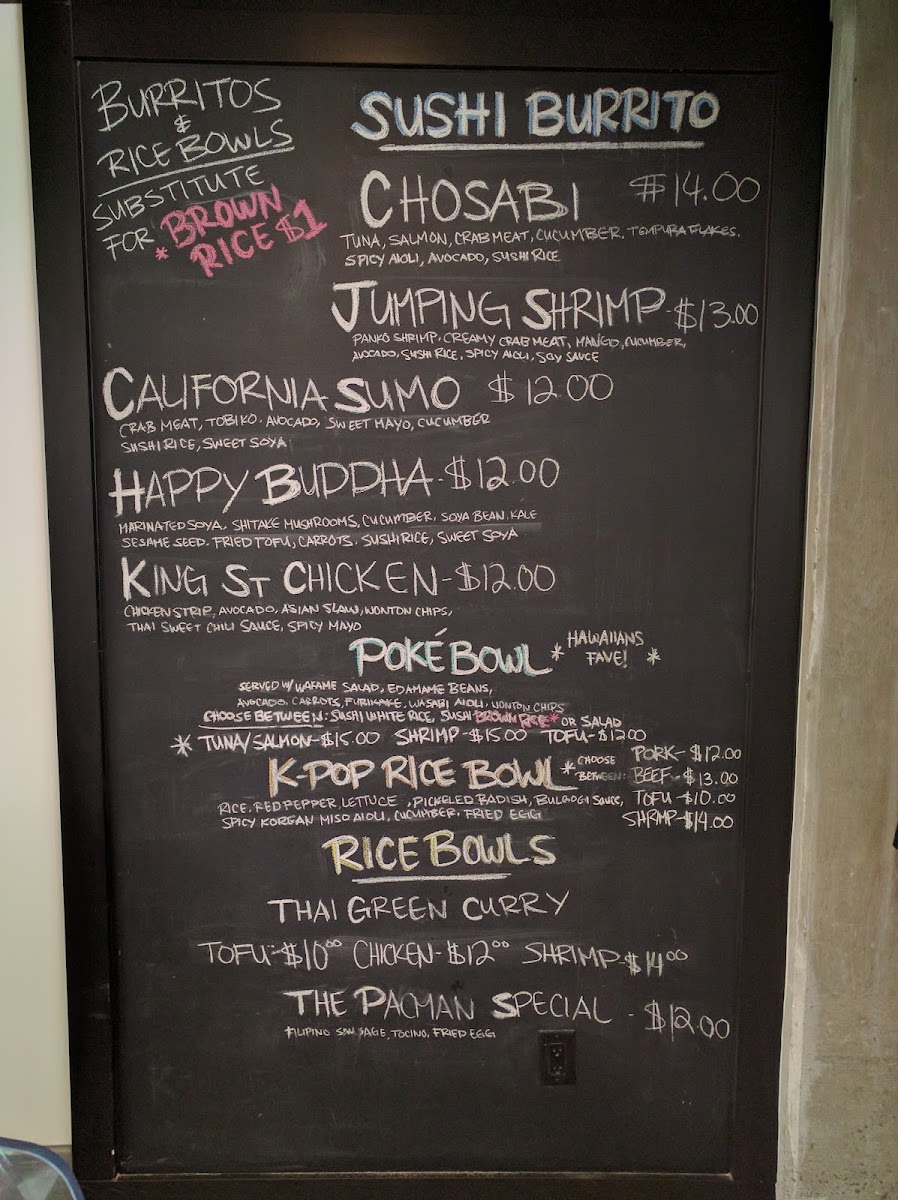 BURRITOS
&
RICE BOWLS
SUBSTITUTE
FOR *BROWN
RICE $1
SUSHI BURRITO
CHOSABI $14.00
TUNA, SALMON, CRAB MEAT, CUCUMBER, TEMPURA FLAKES.
SPICY AIOLI, AVOCADO, SUSHI RICE
JUMPING SHRIMP-$13.00
PANKO SHRIMP, CREAMY CRAB MEAT, MANGO, CUCUMBER,
AVOCADO, SUSHI RICE, SPICY AIOLI, SOY SAUCE
CALIFORNIA SUMO $12.00
CRAB MEAT, TOBIKO, AVOCADO, SWEET MAYO, CUCUMBER
SUSHI RICE, SWEET SOYA
HAPPY BUDDHA-$12.00
MARINATED SOYA, SHITAKE MUSHROOMS, CUCUMBER, SOYA BEAN, KALE
SESAME SEED, FRIED TOFU, CARROTS, SUSHI RICE, SWEET SOYA
KING ST CHICKEN-$12.00
CHICKEN STRIP, AVOCADO, ASIAN SLAW, WONTON CHIPS,
THAI SWEET CHILI SAUCE, SPICY MAYO
POKÉ BOWL
* HAWAIIANS
FAVE! *
SERVED W/ WAKAME SALAD, EDAMAME BEANS,
AVOCADO, CARROTS, FURIKAKE, WASABI AIOLI, WONTON CHIPS
CHOOSE BETWEEN: SUSHI WHITE RICE, SUSHI BROWN RICE* OR SALAD
* TUNA/SALMON-$15.00 SHRIMP-$15.00 TOFU-$12.00
K-POP RICE BOWL *CHOOSE BETWEEN:
PORK-$12.00
BEEF-$13.00
TOFU-$10.00
SHRIMP-$14.00
RICE, RED PEPPER, LETTUCE, PICKELED RADISH, BULGOGI SAUCE,
SPICY KOREAN MISO AIOLI, CUCUMBER, FRIED EGG
RICE BOWLS
THAI GREEN CURRY
TOFU-$10.00 CHICKEN-$12.00 SHRIMP-$14.00
THE PACMAN SPECIAL - $12.00
FILIPINO SAUSAGE, TOCINO, FRIED EGG